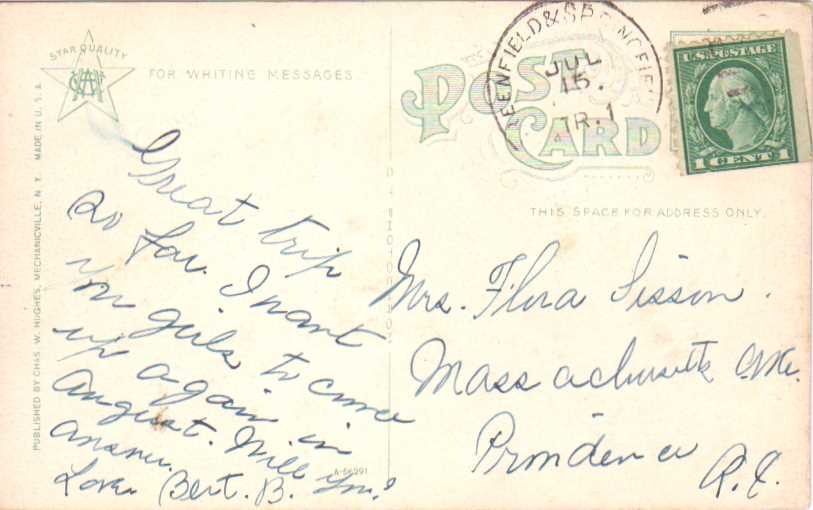 STAR QUALITY
CWH
FOR WRITING MESSAGES
POST
CARD
GREENFIELD & SPRINGFIEL
JUL
15
TR. 1
U.S. POSTAGE
1 CENT 1
THIS SPACE FOR ADDRESS ONLY.
PUBLISHED BY CHAS. W. HUGHES, MECHANICVILLE, N. Y. MADE IN U. S. A.
Great trip
so far. I want
you girls to come
up again in
August. Will you?
Answer.
Love. Bert. B.
A-56291
Mrs. Flora Sisson.
Massachusetts Ave.
Providence
R.I.